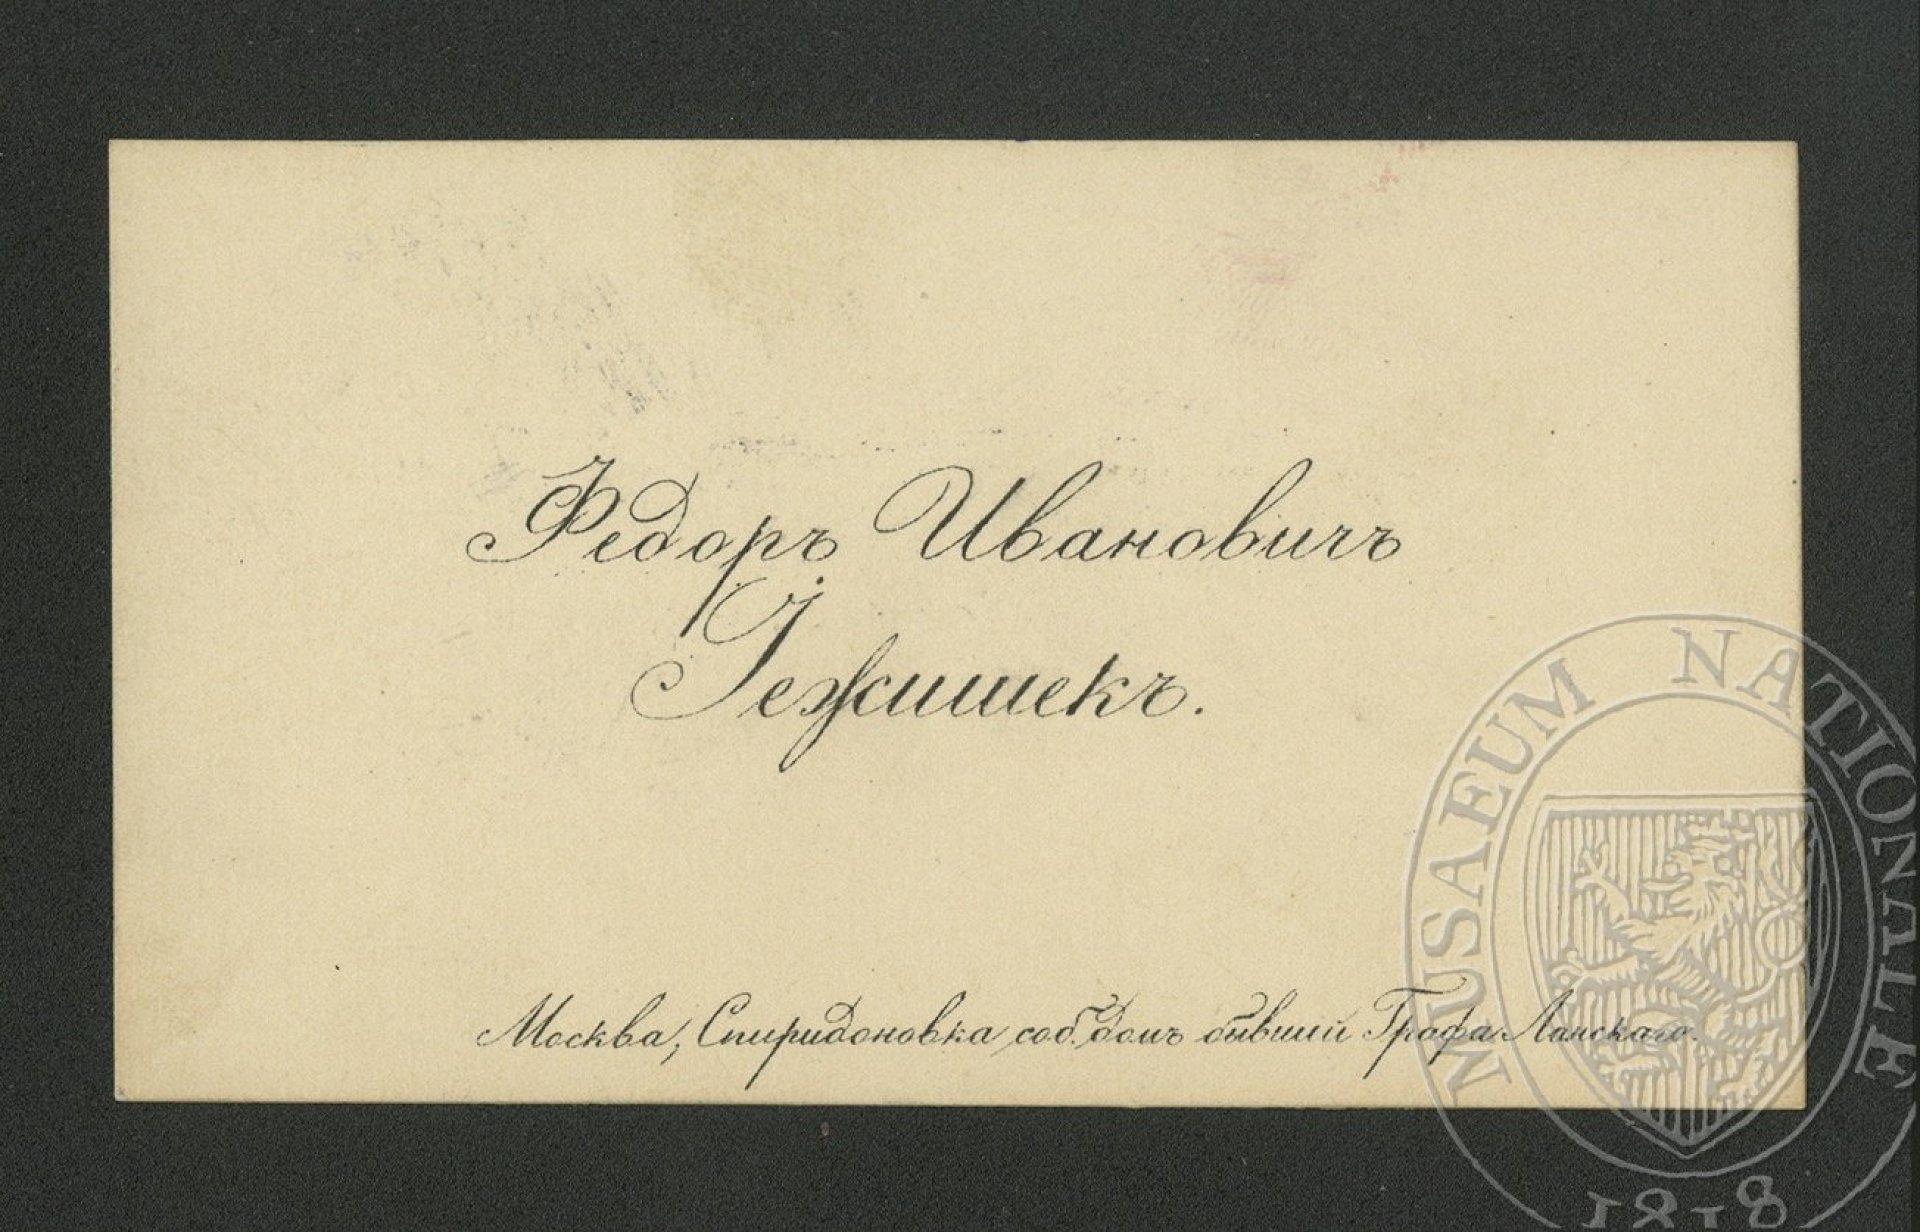 Ѳедоръ Ивановичъ
Іежишекъ.
Москва, Спиридоновка соб. домъ бывшій Графа Ланскаго.
MUSAEUM NATIONALE
1818